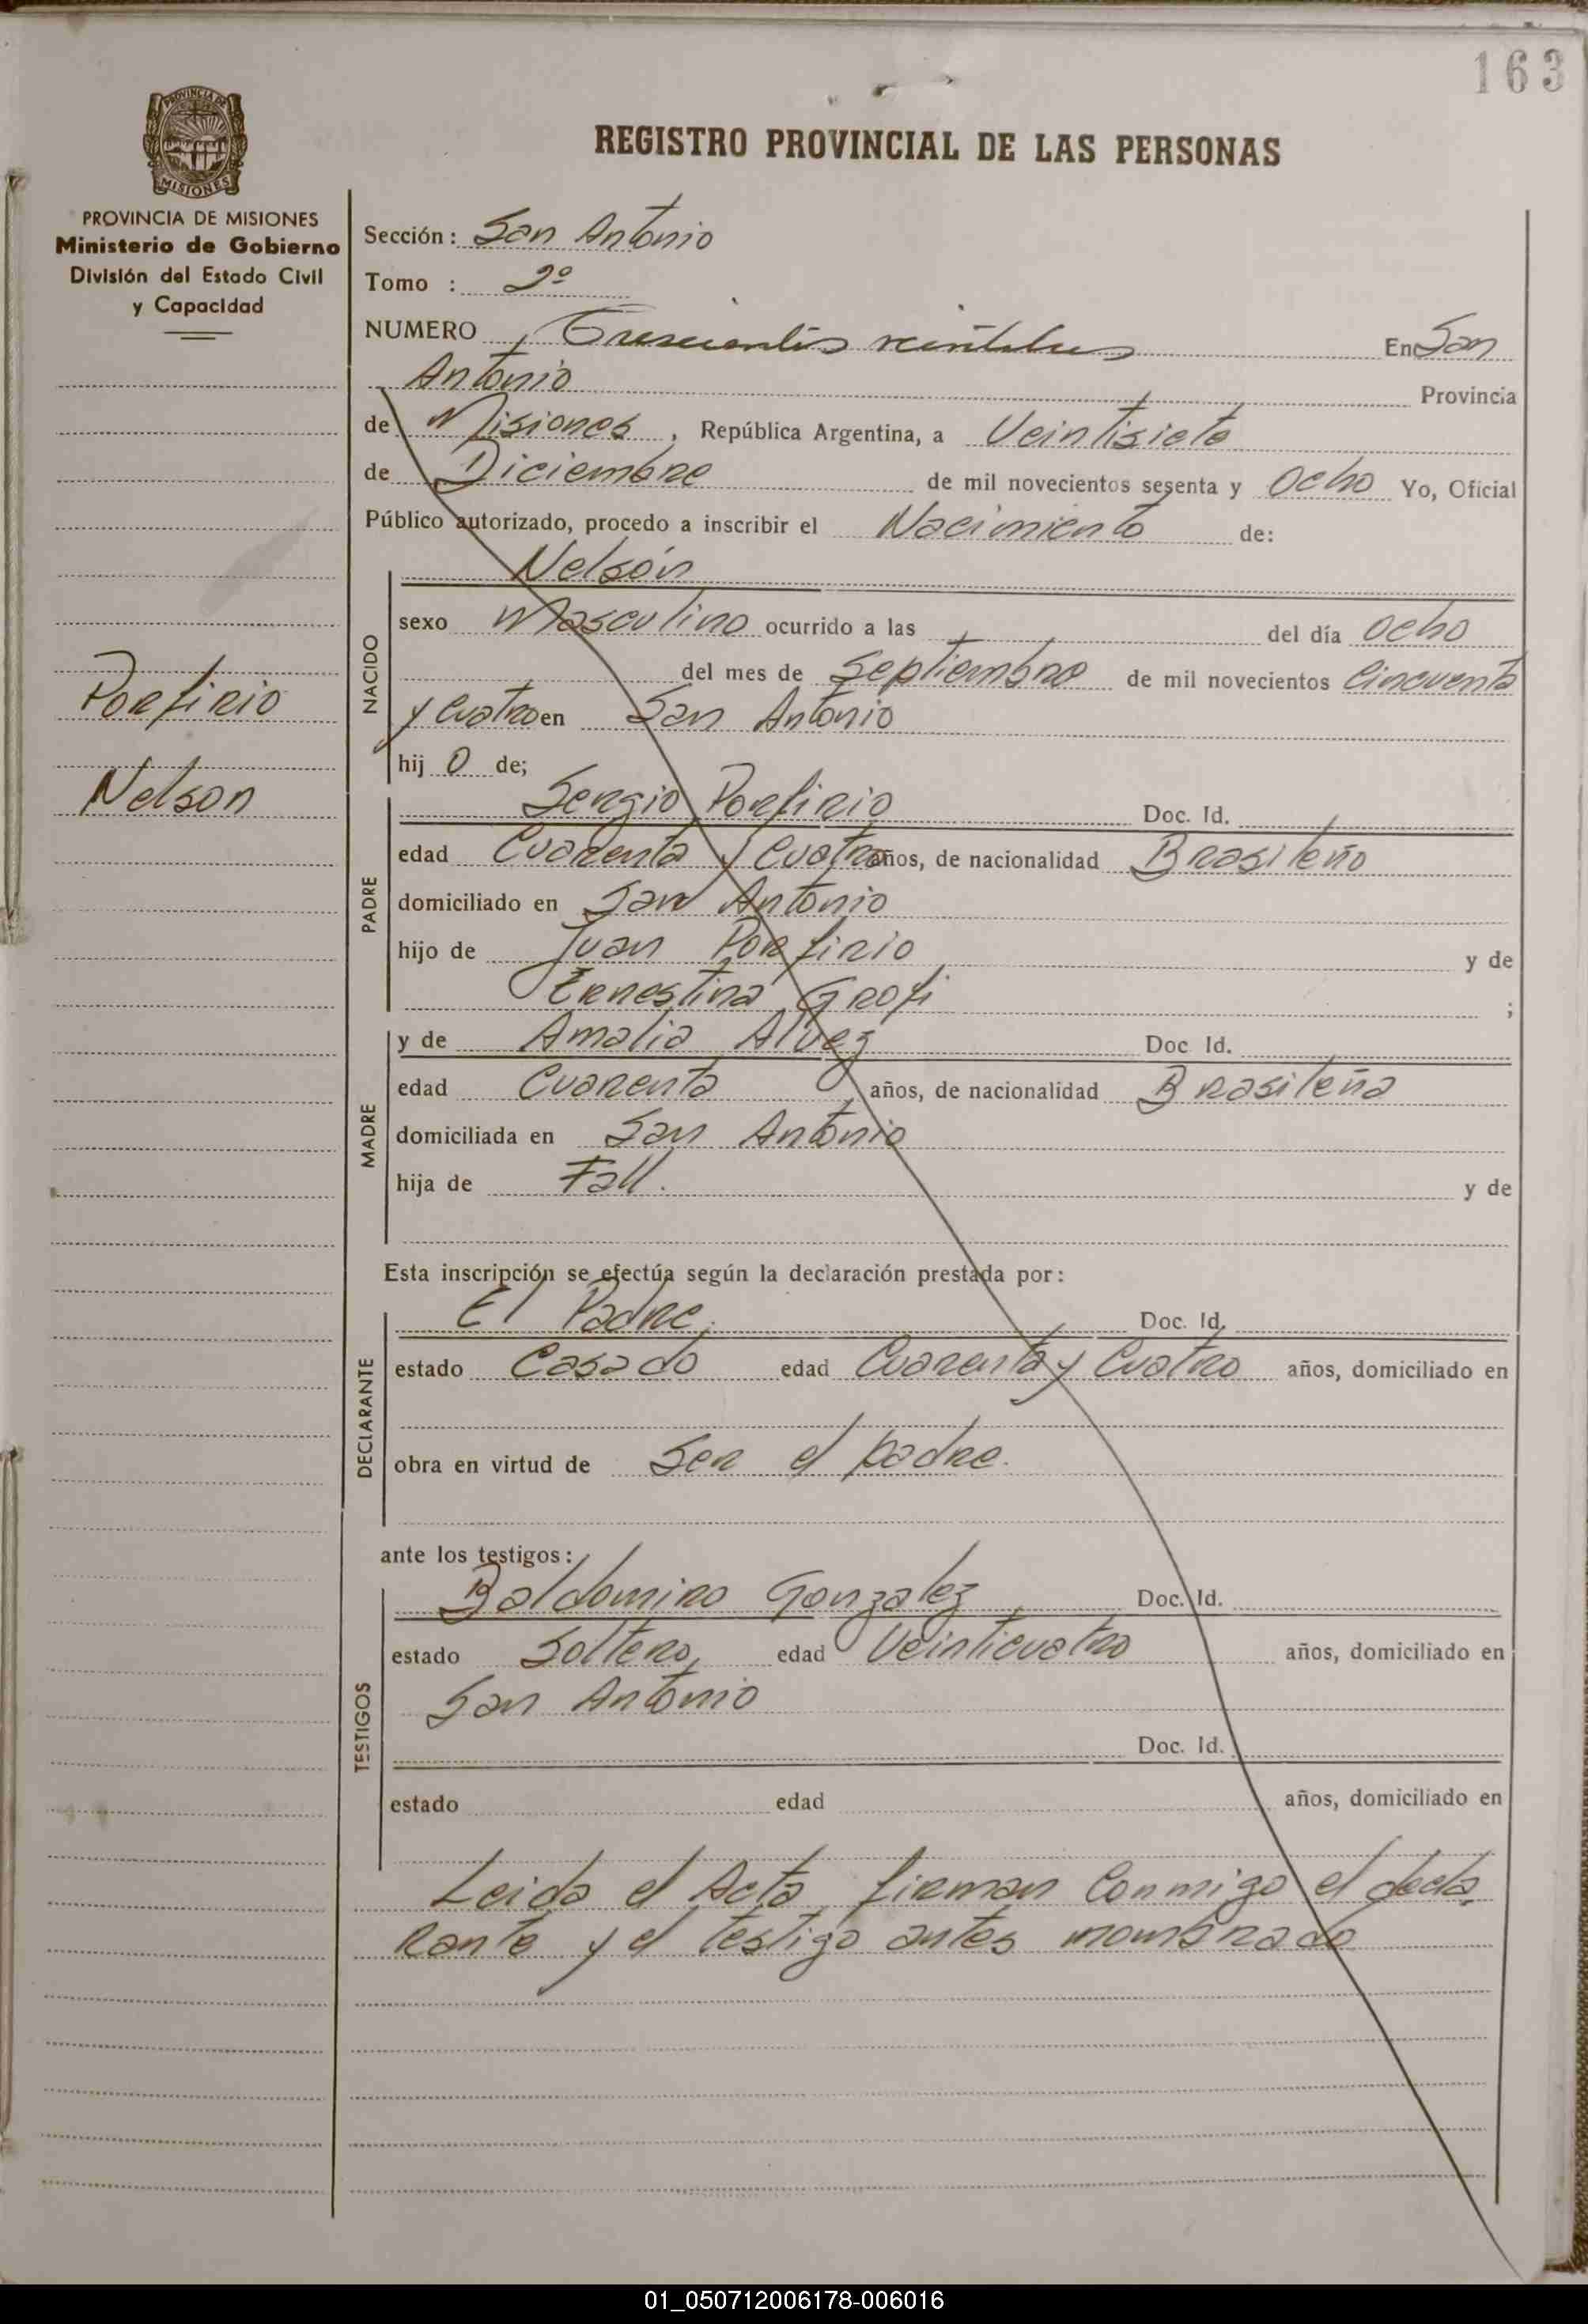 163
PROVINCIA DE
MISIONES
REGISTRO PROVINCIAL DE LAS PERSONAS
PROVINCIA DE MISIONES
Ministerio de Gobierno
División del Estado Civil
y Capacidad
Sección: San Antonio
Tomo : 2º
NUMERO Trescientos En San
Antonio Provincia
de Misiones, República Argentina, a Veintisiete
de Diciembre de mil novecientos sesenta y ocho Yo, Oficial
Público autorizado, procedo a inscribir el Nacimiento de:
Porfirio
Nelson
NACIDO
Nelsón
sexo Masculino ocurrido a las del día ocho
del mes de Septiembre de mil novecientos Cincuenta
y Cuatro en San Antonio
hij o de;
PADRE
Sergio Porfirio Doc. Id.
edad Cuarenta y Cuatro años, de nacionalidad Brasileño
domiciliado en San Antonio
hijo de Juan Porfirio y de
Ernestina Grofi ;
MADRE
y de Amalia Alvez Doc Id.
edad Cuarenta años, de nacionalidad Brasileña
domiciliada en San Antonio
hija de Fall. y de
Esta inscripción se efectúa según la declaración prestada por:
DECLARANTE
El Padre. Doc. Id.
estado Casado edad Cuarenta y Cuatro años, domiciliado en
obra en virtud de Ser el padre.
ante los testigos:
TESTIGOS
Baldomiro Gonzalez Doc. Id.
estado Soltero, edad Veinticuatro años, domiciliado en
San Antonio
Doc. Id.
estado edad años, domiciliado en
Leida el Acta, firman Conmigo el decla
rante y el testigo antes nombrado
01_050712006178-006016